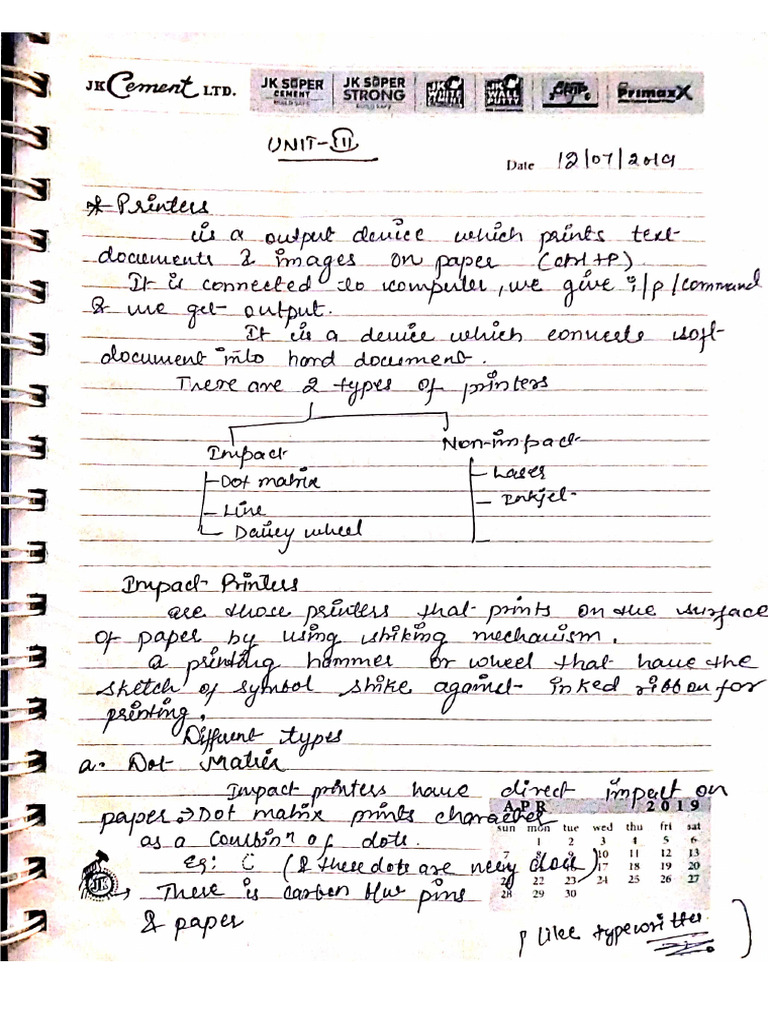 JK Cement LTD. JK SUPER CEMENT BUILD SAFE JK SUPER STRONG BUILD SAFE JK WHITE CEMENT JK WALL PUTTY PrimaxX
UNIT-III
Date 12/07/2019
* Printers
is a output device which prints text
documents & images on paper (ctrl+P).
It is connected to computer, we give i/p/command
& we get output.
It is a device which converts soft
document into hard document.
There are 2 types of printers
Impact Non-impact
Dot matrix Laser
Line Inkjet
Daisey wheel
Impact Printers
are those printers that prints on the surface
of paper by using striking mechanism.
a printing hammer or wheel that have the
sketch of symbol strike against inked ribbon for
printing.
Different types
a. Dot Matrix
Impact printers have direct impact on
paper. → Dot matrix prints character
as a Combinⁿ of dots.
Eg: C (& these dots are very close)
→ There is carbon b/w pins
& paper
like typewritter
APR 2019
sun mon tue wed thu fri sat
1 2 3 4 5 6
7 8 9 10 11 12 13
16 17 18 19 20
21 22 23 24 25 26 27
28 29 30
JK